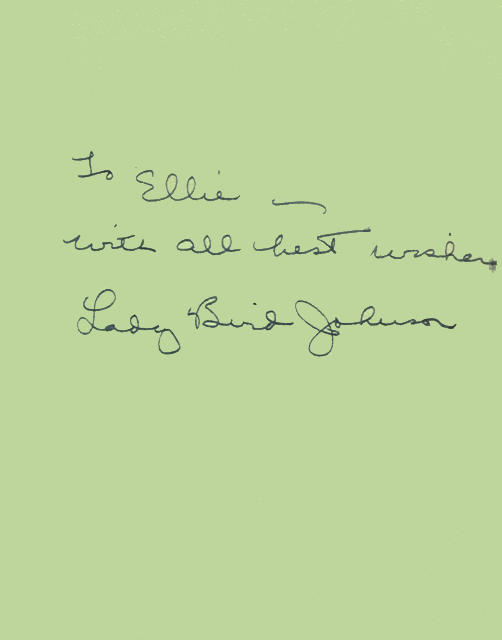 To Ellie —
with all best wishes
Lady Bird Johnson